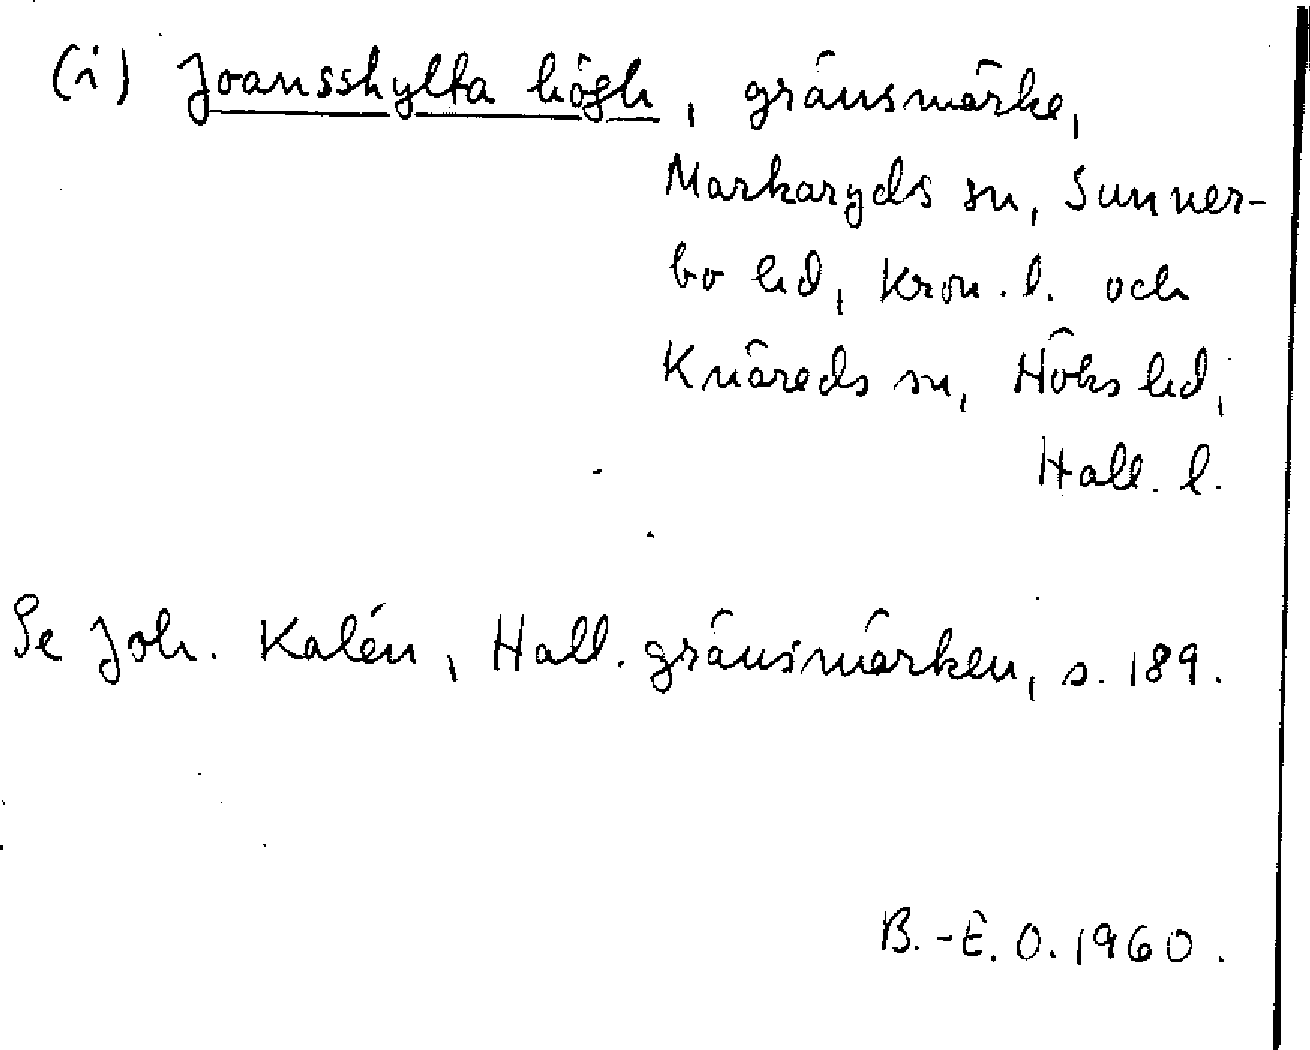 (i) Joansskylta högh, gränsmärke,
Markaryds sn, Sunner-
bo hd, Kron. l. och
Knäreds sn, Höks hd,
Hall. l.
Se Joh. Kalén, Hall. gränsmärken, s. 189.
B.-E. O. 1960.